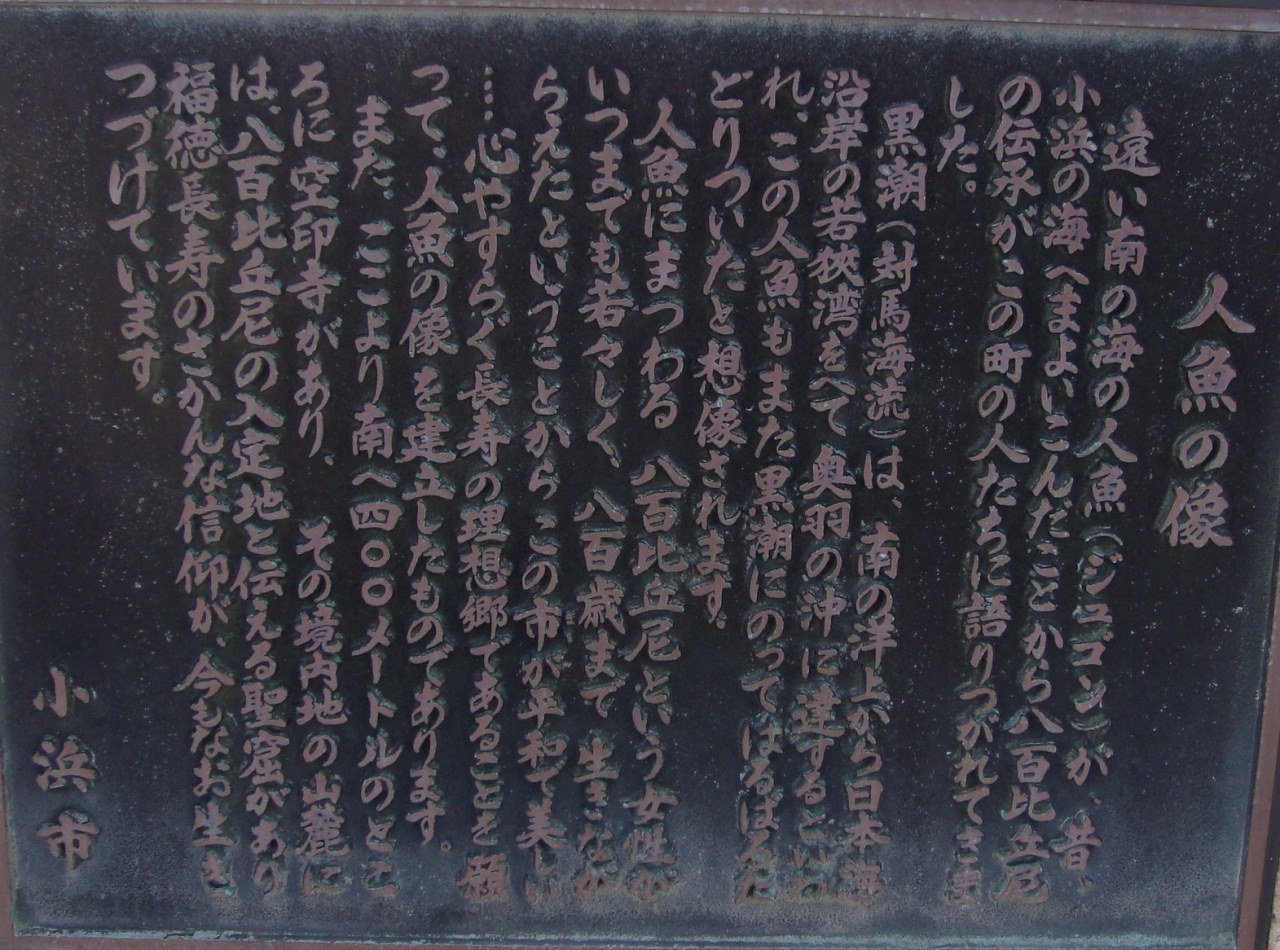 人魚の像
遠い南の海の人魚(ジュゴン)が、昔、
小浜の海へまよいこんだことから八百比丘尼
の伝承がこの町の人たちに語りつがれてきま
した。
黒潮(対馬海流)は、南の洋上から日本海
沿岸の若狭湾をへて奥羽の沖に達するといわ
れ、この人魚もまた黒潮にのってはるばるた
どりついたと想像されます。
人魚にまつわる 八百比丘尼という女性が
いつまでも若々しく、八百歳まで 生きなが
らえたということから この市が平和で美しい
…心やすらぐ長寿の理想郷であることを願
って、人魚の像を建立したものであります。
また、ここより南へ四〇〇メートルのとこ
ろに空印寺があり、 その境内地の山麓に
は、八百比丘尼の入定地と伝える聖窟があり
福徳長寿のさかんな信仰が、今もなお生き
つづけています。
小浜市